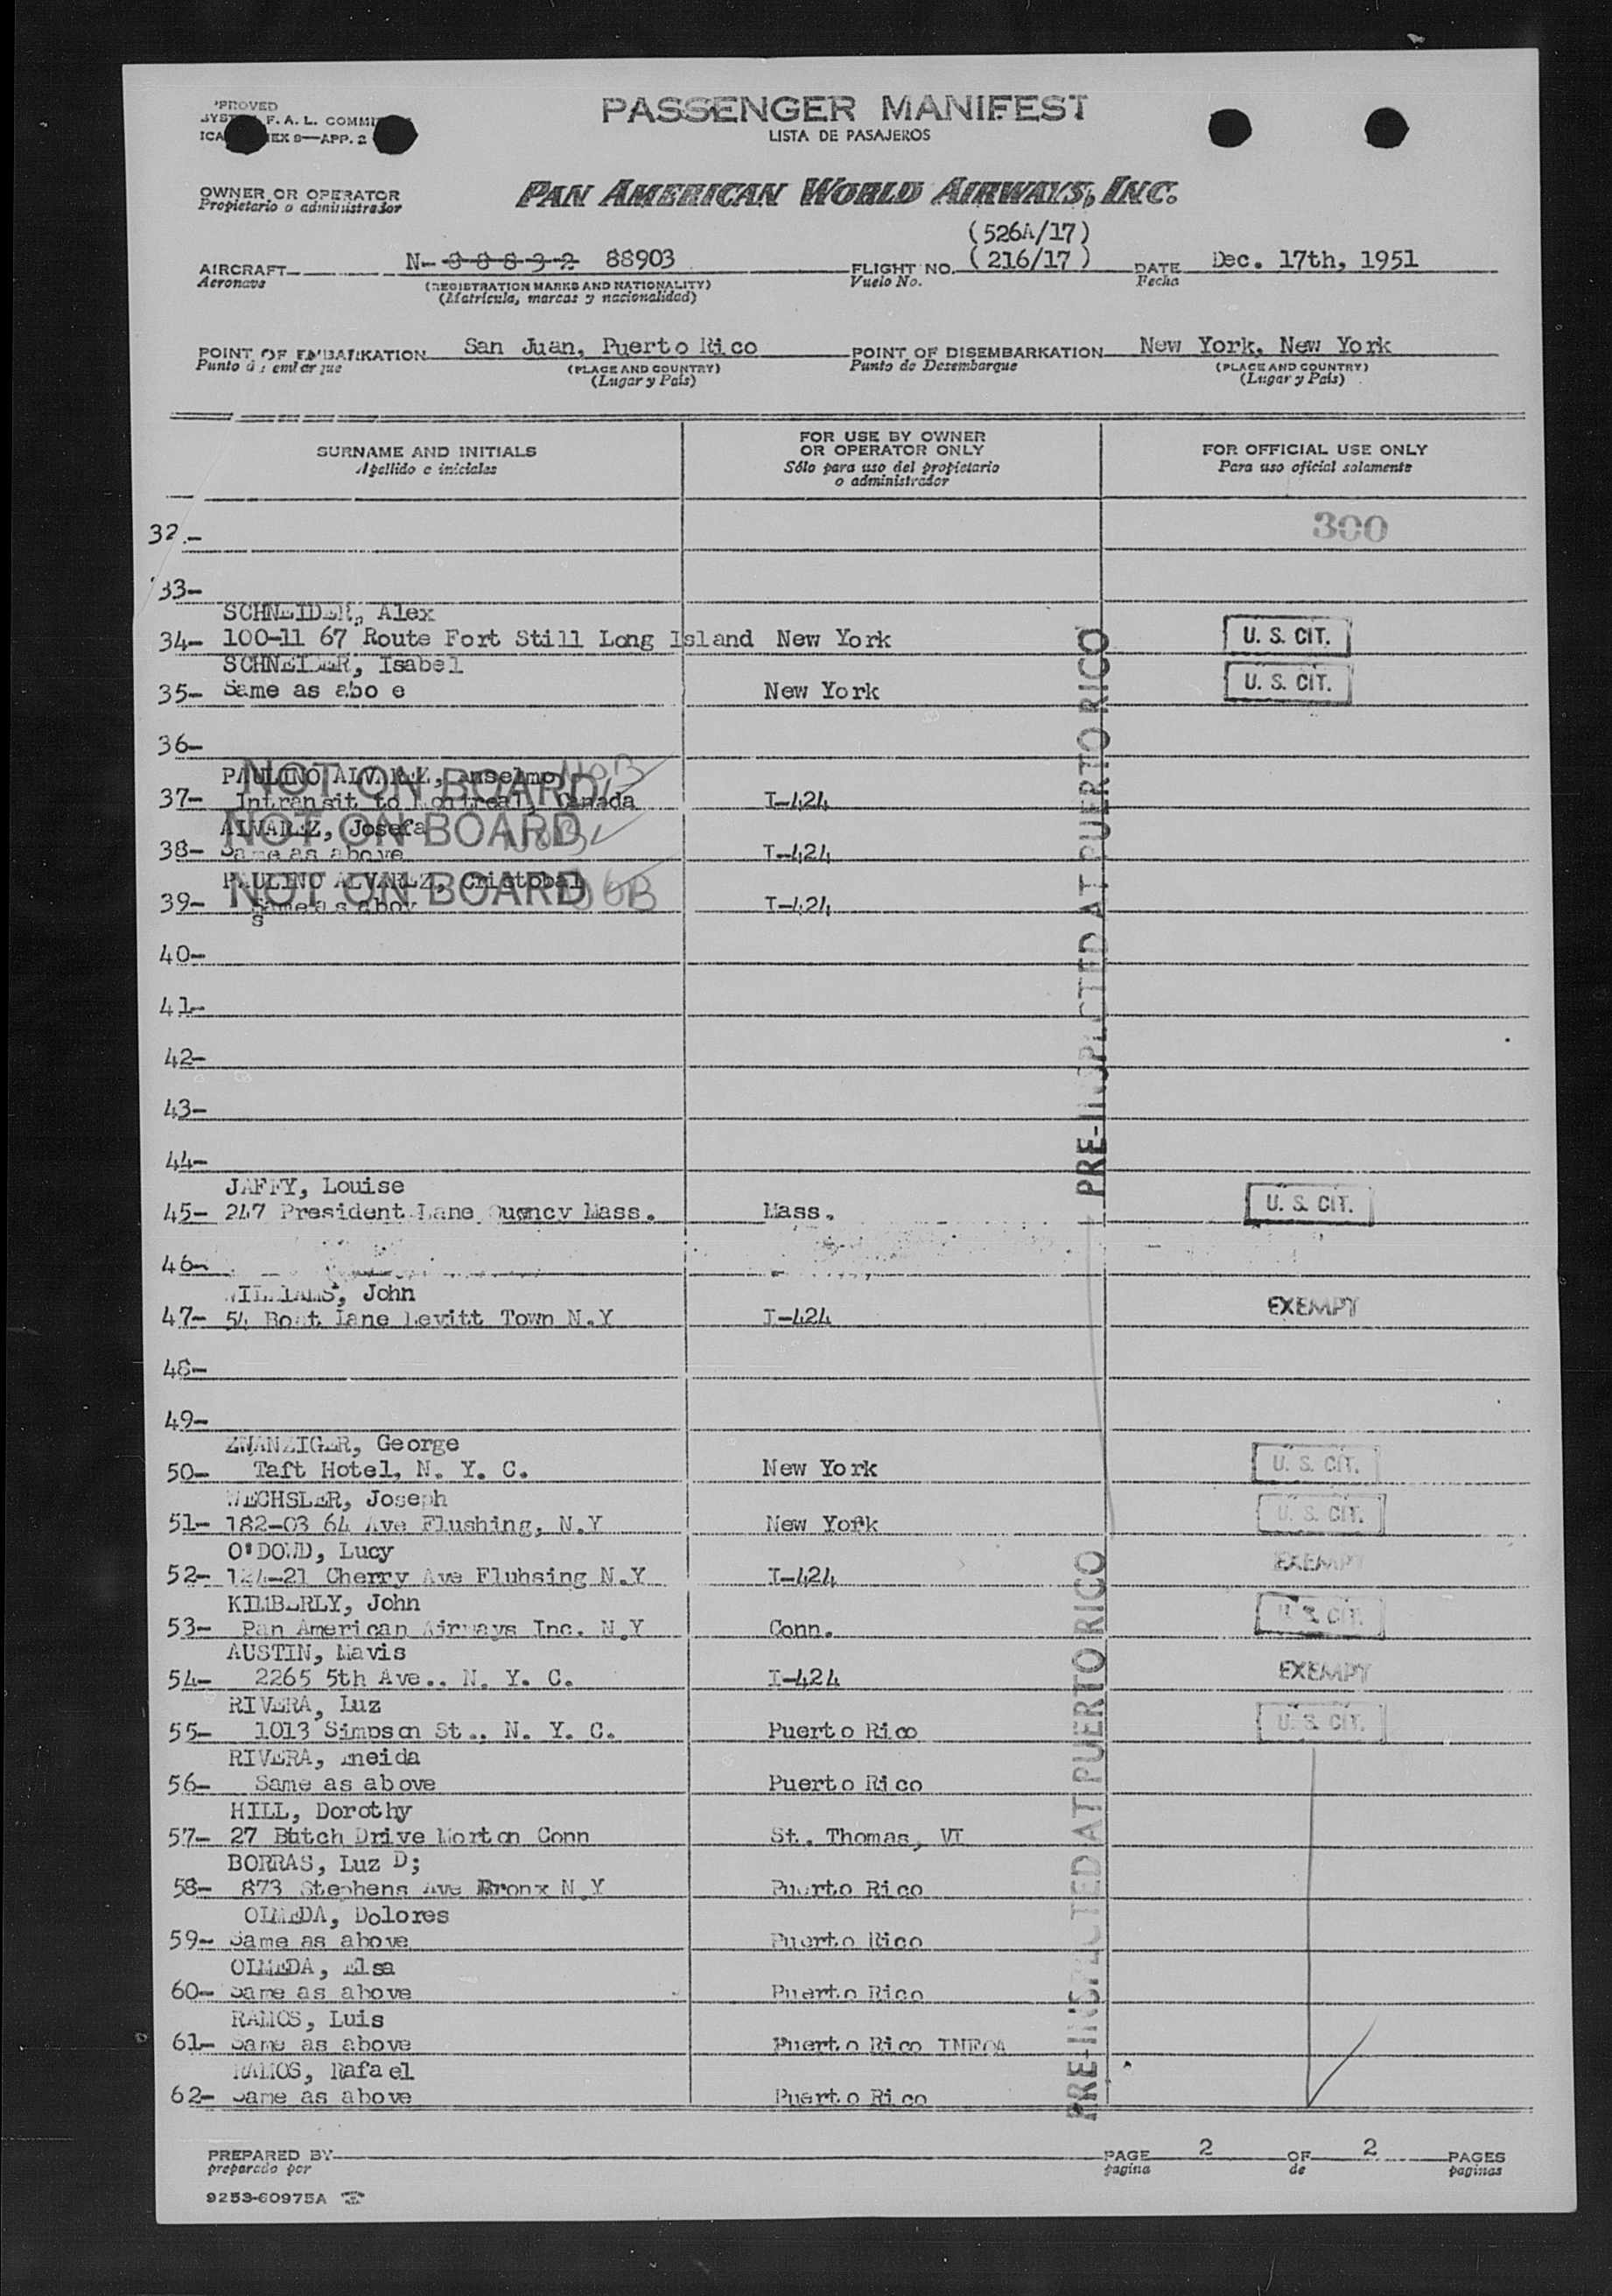 PASSENGER MANIFEST
LISTA DE PASAJEROS
OWNER OR OPERATOR
Propietario o administrador
PAN AMERICAN WORLD AIRWAYS, INC.
(526A/17)
AIRCRAFT N- 88832 88903 FLIGHT NO. (216/17) DATE Dec. 17th, 1951
Aeronave Vuelo No. Fecha
(REGISTRATION MARKS AND NATIONALITY)
(Matrícula, marcas y nacionalidad)
POINT OF EMBARKATION San Juan, Puerto Rico POINT OF DISEMBARKATION New York, New York
(PLACE AND COUNTRY) Punto de Desembarque (PLACE AND COUNTRY)
(Lugar y País) (Lugar y País)
SURNAME AND INITIALS FOR USE BY OWNER OR OPERATOR ONLY FOR OFFICIAL USE ONLY
Apellido e iniciales Sólo para uso del propietario o administrador Para uso oficial solamente
32.- 300
33-
SCHNEIDER, Alex
34- 100-11 67 Route Fort Still Long Island New York U. S. CIT.
SCHNEIDER, Isabel
35- Same as abo e New York U. S. CIT.
36-
PAULINO ALVAREZ, Anselmo NOB
NOT ON BOARD
37- Intransit to Montreal, Canada I-424
ALVAREZ, Josefa
NOT ON BOARD
38- Same as above I-424
PAULINO ALVAREZ, Cristobal
NOT ON BOARD
39- Same as abov I-424
s
40-
41-
42-
43-
44-
PRE-INSPECTED AT PUERTO RICO
JAFFY, Louise
45- 247 President Lane Quency Mass. Mass. U. S. CIT.
46-
WILLIAMS, John
47- 54 Boat Lane Levitt Town N.Y I-424 EXEMPT
48-
49-
ZWANZIGER, George
50- Taft Hotel, N. Y. C. New York U. S. CIT.
WECHSLER, Joseph
51- 182-03 64 Ave Flushing, N.Y New York U. S. CIT.
O'DOWD, Lucy
52- 124-21 Cherry Ave Fluhsing N.Y I-424 EXEMPT
KIMBERLY, John
53- Pan American Airways Inc. N.Y Conn. U. S. CIT.
AUSTIN, Mavis
54- 2265 5th Ave.. N. Y. C. I-424 EXEMPT
RIVERA, Luz
55- 1013 Simpson St.. N. Y. C. Puerto Rico U. S. CIT.
RIVERA, Eneida
56- Same as above Puerto Rico
HILL, Dorothy
57- 27 Butch Drive Norton Conn St. Thomas, VI
BORRAS, Luz D;
58- 873 Stephens Ave Bronx N.Y Puerto Rico
OLMEDA, Dolores
59- Same as above Puerto Rico
OLMEDA, Elsa
60- Same as above Puerto Rico
RAMOS, Luis
61- Same as above Puerto Rico
RAMOS, Rafael
62- Same as above Puerto Rico
PRE-INSPECTED AT PUERTO RICO
PREPARED BY PAGE 2 OF 2 PAGES
preparado por pagina de paginas
9253-60975A